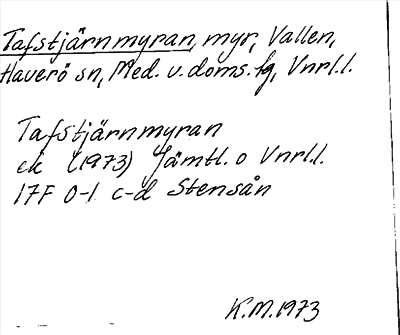 Tafstjärnmyran, myr, Vallen,
Haverö sn, Med. v. doms. fg, Vnrl.l.
Tafstjärnmyran
ek (1973) Jämtl. o Vnrl.l.
17F 0-1 c-d Stensån
K.M. 1973